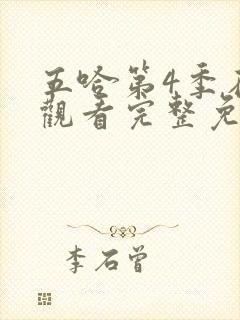 五哈第4季在
觀看完整免
李石曾